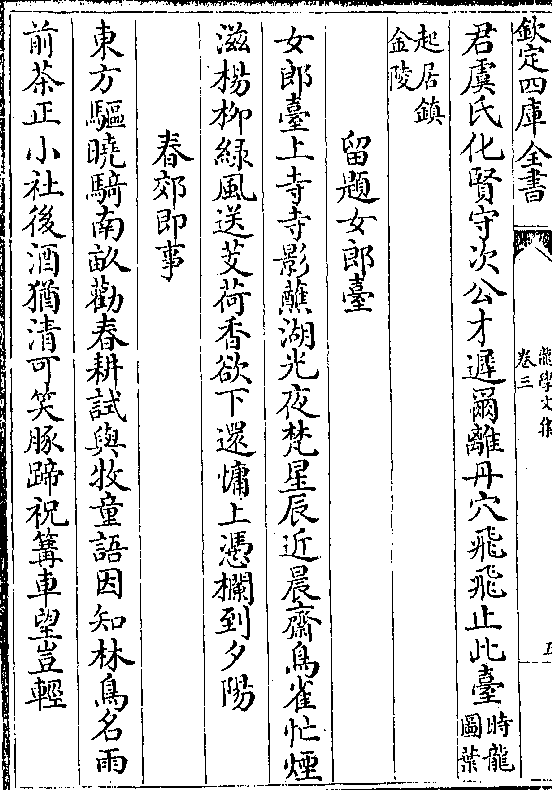 欽定四庫全書
龍學文集
卷三
君虞氏化賢守次公才遲爾離丹穴飛飛止此臺時龍圖葉
起居鎮
金陵
留題女郎臺
女郎臺上寺寺影蘸湖光夜梵星辰近晨齋鳥雀忙煙
滋楊柳緑風送芰荷香欲下還慵上憑欄到夕陽
春郊即事
東方驅曉騎南畝勸春耕試與牧童語因知林鳥名雨
前茶正小社後酒猶清可笑豚蹄祝篝車望豈輕